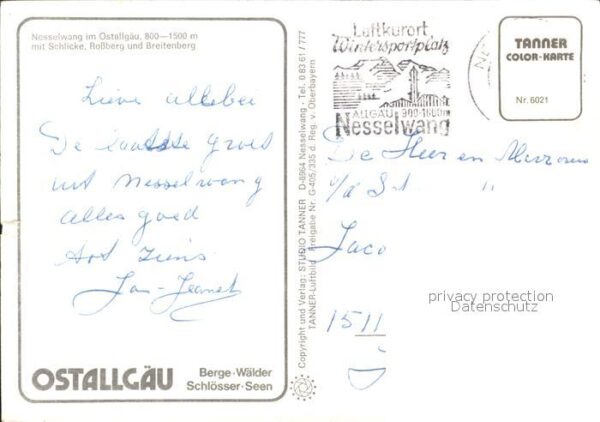 Nesselwang im Ostallgäu, 800—1500 m
mit Schlicke, Roßberg und Breitenberg
Lieve allebei
De laatste groet
uit Nesselwang
alles goed
Jan-Jeanet
OSTALLGÄU
Berge·Wälder
Schlösser·Seen
Copyright und Verlag: STUDIO TANNER D-8964 Nesselwang - Tel. 0 83 61 / 777
TANNER-Luftbild Freigabe Nr. G-405/335 d. Reg. v. Oberbayern
Luftkurort
Wintersportplatz
ALLGÄU 900-1600m
Nesselwang
TANNER
COLOR-KARTE
Nr. 6021
De Heer en
Jaco
privacy protection
Datenschutz
1511